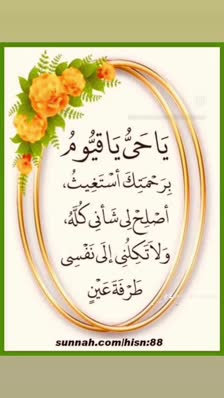 يَا حَيُّ يَا قَيُّومُ
بِرَحْمَتِكَ أَسْتَغِيثُ،
أَصْلِحْ لِي شَأْنِي كُلَّهُ،
وَلَا تَكِلْنِي إِلَى نَفْسِي
طَرْفَةَ عَيْنٍ
sunnah.com/hisn:88